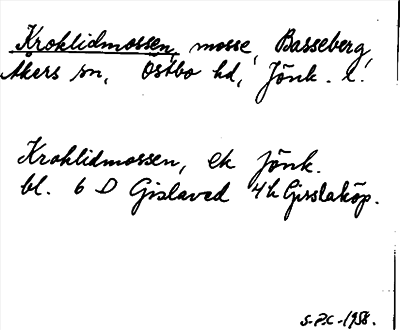 Kroklidmossen, mosse, Basseberg,
Åkers sn, Östbo hd, Jönk. l.
Kroklidmossen, ek Jönk.
bl. 6 D Gislaved 4h Gisslaköp.
S.P.C.-1958.